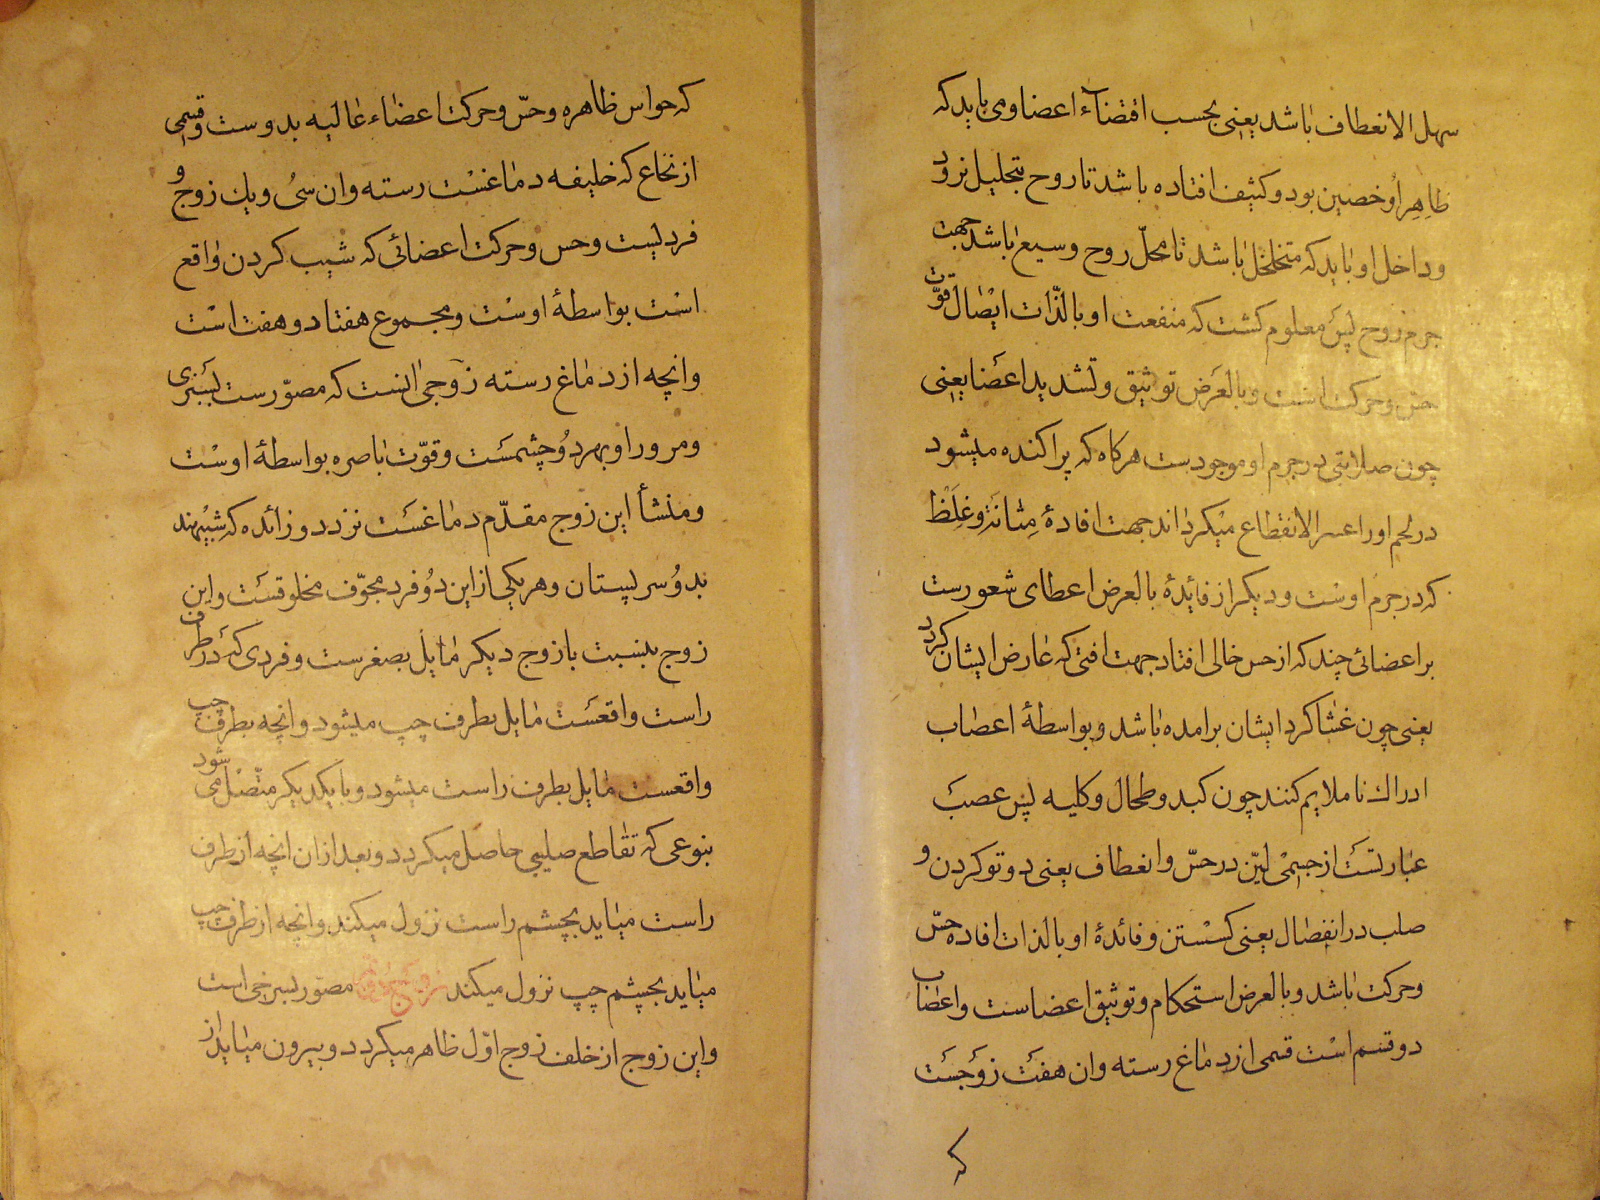 سهل الانعطاف باشد یعنی بحسب اقتضاء اعضا و می باید که
ظاهر او خصین بود و کثیف افتاده باشد تا روح بتحلیل نرود
و داخل او باید که متخلخل باشد تا محلّ روح وسیع باشد جهت
جرم روح پس معلوم کشت که منفعت او بالذّات ایصال قوّت
حس و حرکت است و بالعرض توثیق و تشدید اعضا یعنی
چون صلابتی در جرم او موجودست هرکاه که پراکنده میشود
در لحم او را عسر الانقطاع میکرداند جهت افادهٔ مِتٰانَة و غِلَظ
که در جرم اوست و دیکر از فائدهٔ بالعرض اعطای شعورست
بر اعضائی چند که از حس خالی افتاد جهت افتی که عارض ایشان کردد
یعنی چون غشا کرد ایشان برامده باشد و بواسطهٔ اعصاب
ادراک نا ملایم کنند چون کبد و طحال و کلیه پس عصب
عبارتست از جسمی لیّن در حسّ و انعطاف یعنی دو تو کردن و
صلب در انفصال یعنی کسستن و فائدهٔ او بالذات افاده حسّ
و حرکت باشد و بالعرض استحکام و توثیق اعضاست و اعصاب
دو قسم است قسمی از دماغ رسته وان هفت زوجست
که
که حواس ظاهره و حسّ و حرکت اعضاء عالیه بدوست و قسمی
از نخاع که خلیفه دماغست رسته وان سی و یک زوج و
فردیست و حس و حرکت اعضائی که شیب کردن واقع
است بواسطهٔ اوست و مجموع هفتاد و هفت است
وانچه از دماغ رسته زوجی انست که مصوّرست بسبزی
و مرور او بهر دو چشمست و قوّت باصره بواسطهٔ اوست
و منشأ این زوج مقدّم دماغست نزد دو زائده که شبیهند
بدو سر پستان و هر یکی از این دو فرد مجوّف مخلوقست و این
زوج بنسبت با زوج دیکر مایل بصغرست و فردی که در طرف
راست واقعست مایل بطرف چپ میشود وانچه بطرف چپ
واقعست مایل بطرف راست میشود و با یکدیکر متّصل می شود
بنوعی که تقاطع صلیبی حاصل میکردد و بعد ازان انچه از طرف
راست میاید بچشم راست نزول میکند وانچه از طرف چپ
میاید بچشم چپ نزول میکند مصوّر بسرخی است
و این زوج از خلف زوج اوّل ظاهر میکردد و بیرون میاید از